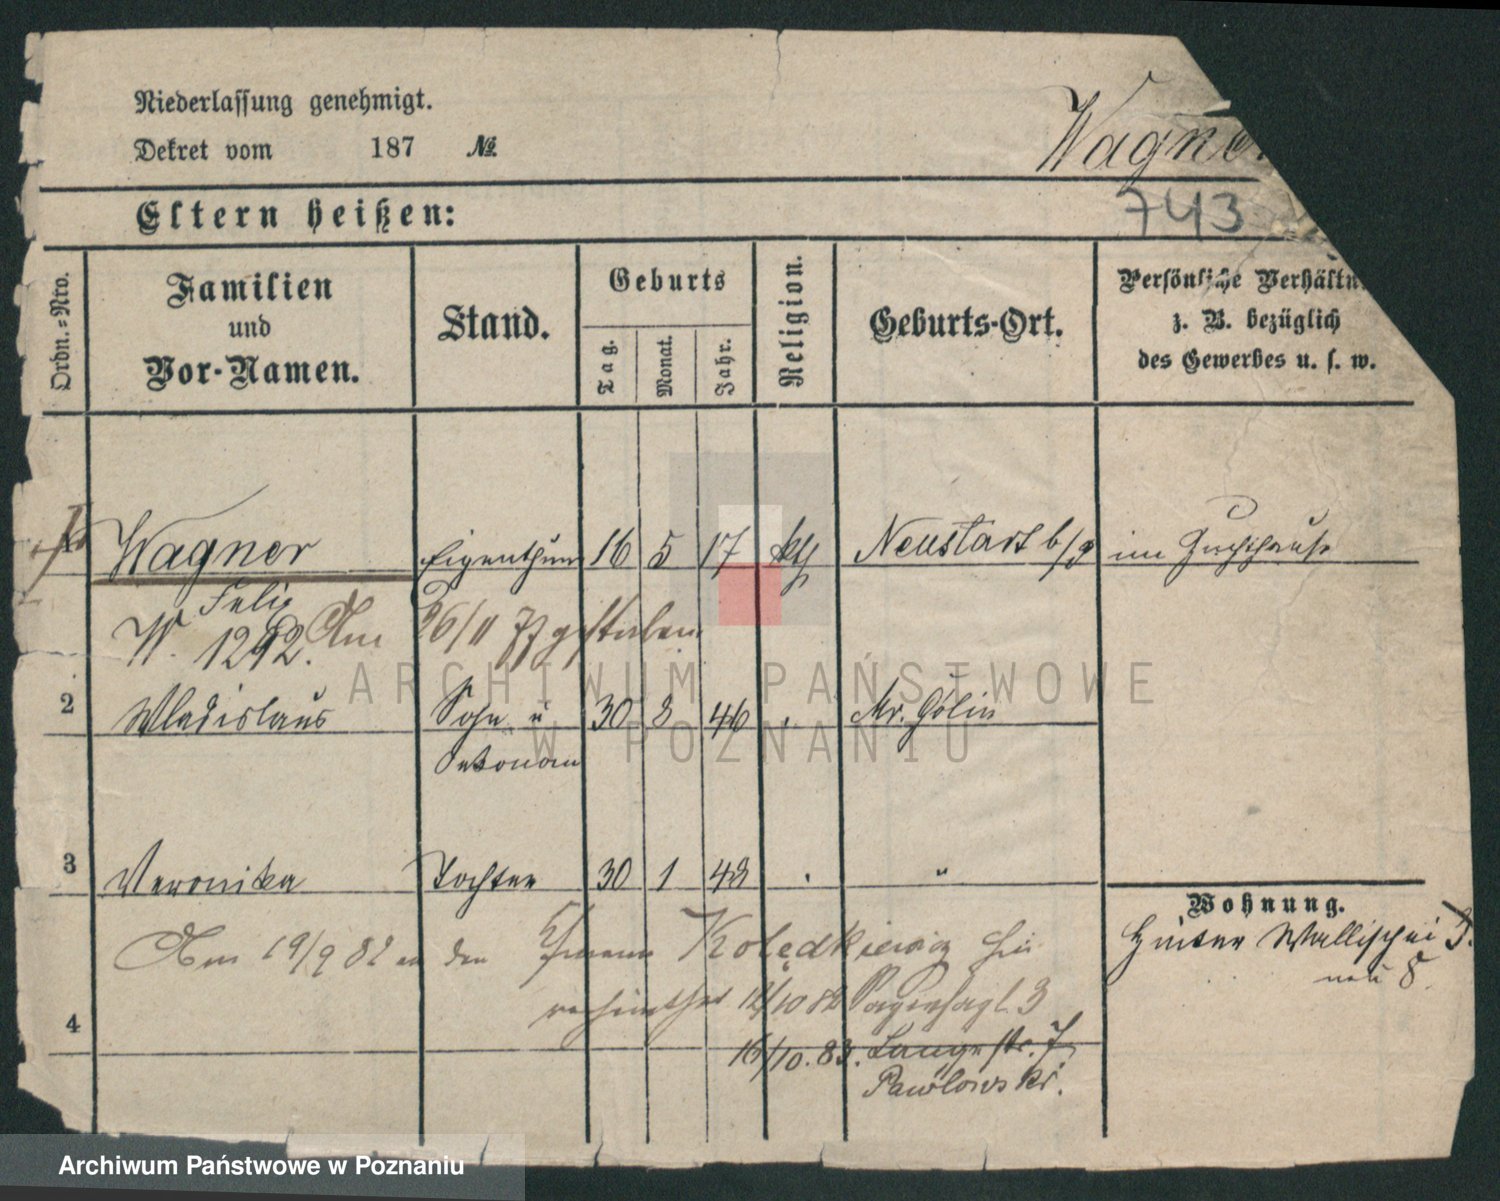 Niederlassung genehmigt.
Dekret vom 187 №
Wagne
743
Eltern heißen:
Ordn.=Nro.
Familien
und
Vor-Namen.
Stand.
Geburts
Tag.
Monat.
Jahr.
Religion.
Geburts-Ort.
Persönliche Verhältn
z. B. bezüglich
des Gewerbes u. s. w.
1 Wagner Eigenthüm 16 5 17 kth Neustadt b/ im Zuchthause
Felix
W. 1292. Am 26/11 77 gestorben
2 Wladislaus Sohn u 30 8 46 Mr. Golin
Oekonom
3 Veronika Tochter 30 1 48 . "
Wohnung.
Hinter Wallischei 3.
neu 8.
Am 19/9 82 an den Kolędkiewicz
12/10 82 3
4
16/10. 83. Lange str. 7
Pawlowski.
ARCHIWUM PAŃSTWOWE
W POZNANIU
Archiwum Państwowe w Poznaniu